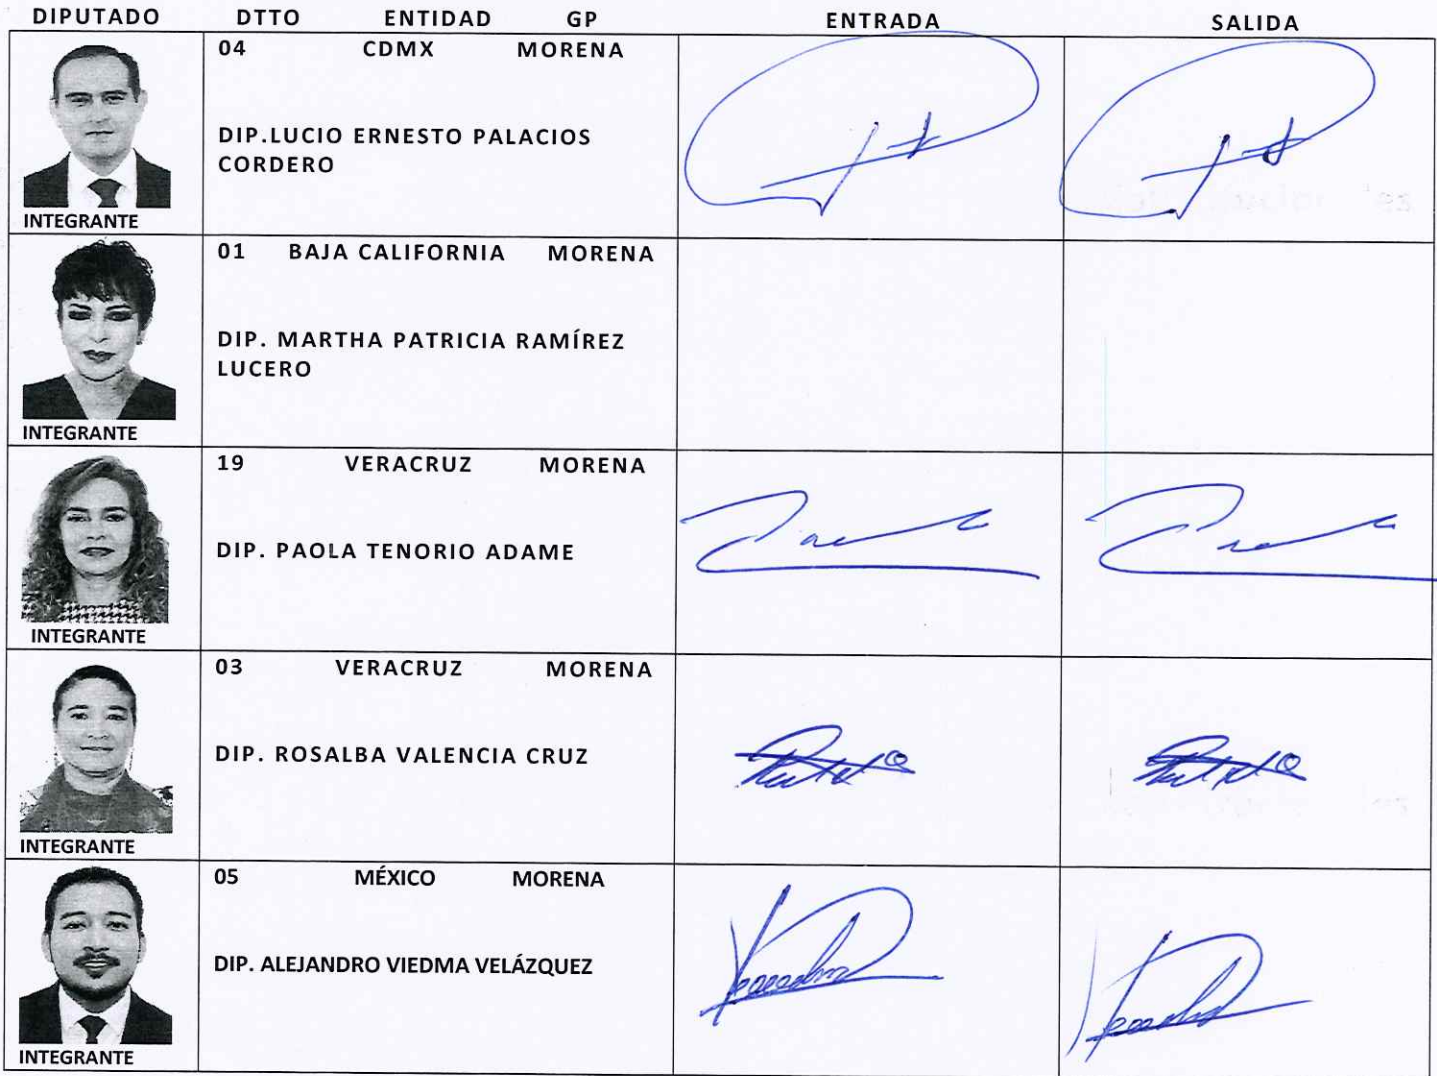 DIPUTADO DTTO ENTIDAD GP ENTRADA SALIDA
04 CDMX MORENA
DIP.LUCIO ERNESTO PALACIOS
CORDERO
INTEGRANTE
01 BAJA CALIFORNIA MORENA
DIP. MARTHA PATRICIA RAMÍREZ
LUCERO
INTEGRANTE
19 VERACRUZ MORENA
DIP. PAOLA TENORIO ADAME
INTEGRANTE
03 VERACRUZ MORENA
DIP. ROSALBA VALENCIA CRUZ
INTEGRANTE
05 MÉXICO MORENA
DIP. ALEJANDRO VIEDMA VELÁZQUEZ
INTEGRANTE